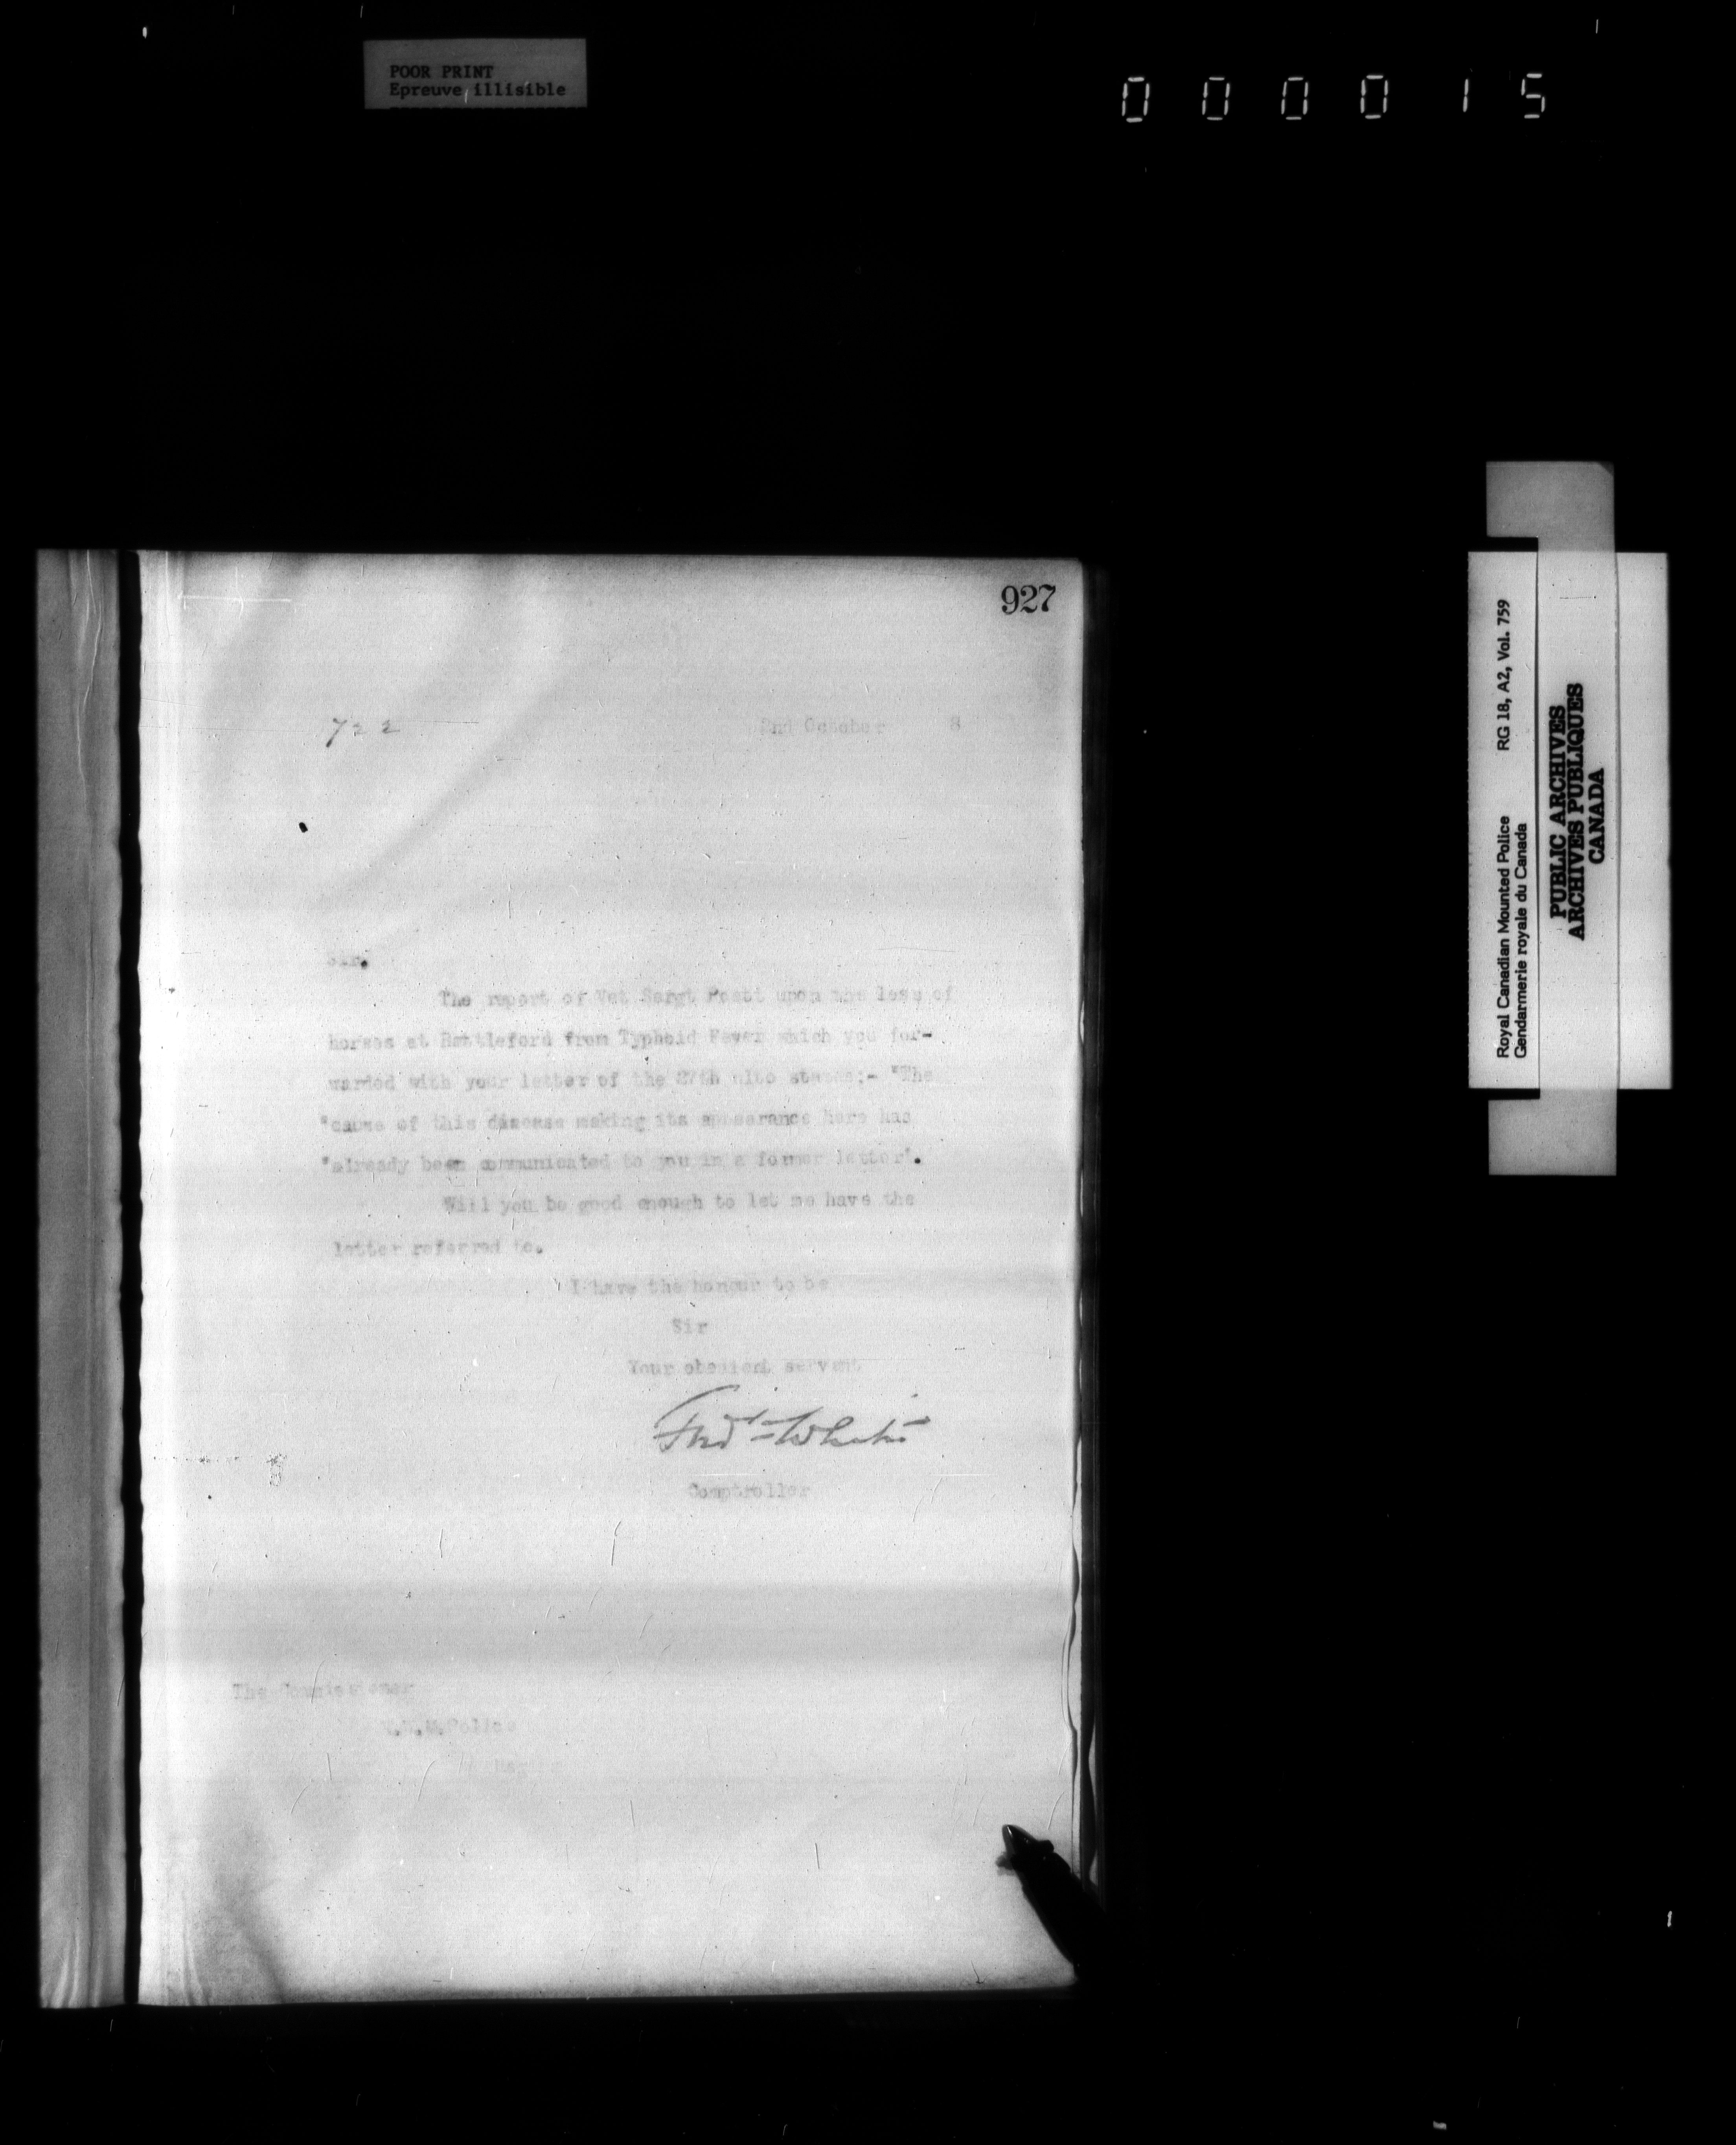 POOR PRINT
Epreuve illisible
000015
927
722
2nd October 8
Sir,
The report of Vet Sergt Pratt upon the loss of
horses at Battleford from Typhoid Fever which you for-
warded with your letter of the 27th ulto states:- "The
"cause of this disease making its appearance here has
"already been communicated to you in a former letter".
Will you be good enough to let me have the
letter referred to.
I have the honour to be
Sir
Your obedient servant
Fred White
Comptroller
The Commissioner
N.W.M.Police
Regina
Royal Canadian Mounted Police RG 18, A2, Vol. 759
Gendarmerie royale du Canada
PUBLIC ARCHIVES
ARCHIVES PUBLIQUES
CANADA